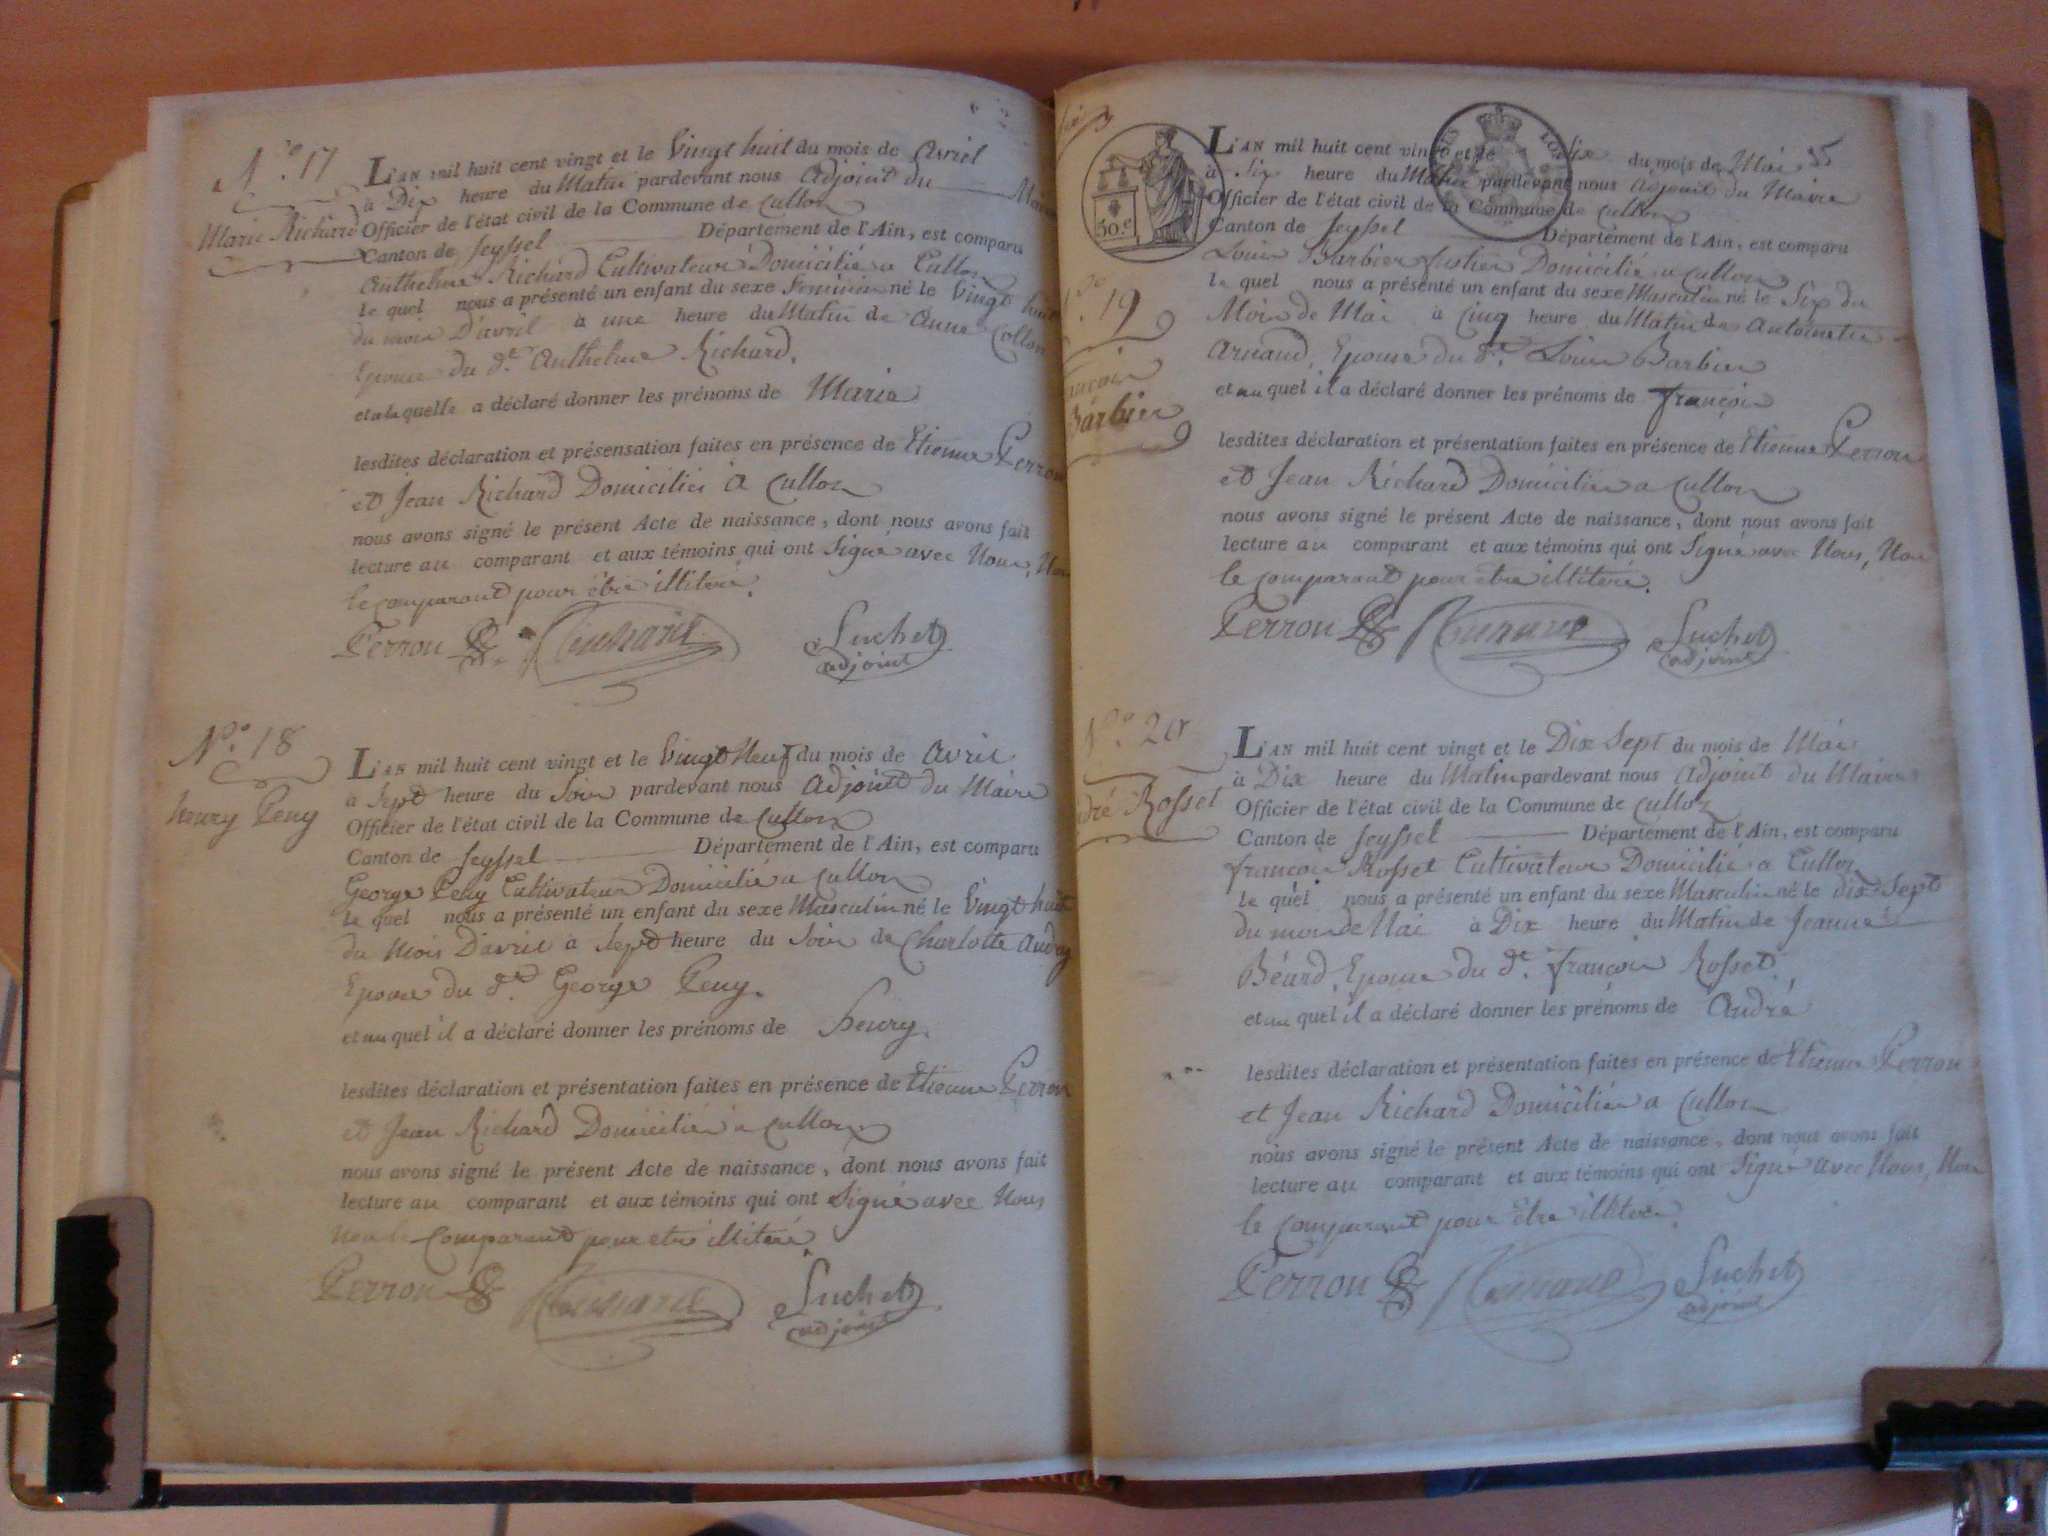 N.° 17
Marie Richard
L'AN mil huit cent vingt et le Vingt huit du mois de Avril
à Dix heure du Matin pardevant nous Adjoint du Maire
Officier de l'état civil de la Commune de Culloz
Canton de Seyssel Département de l'Ain, est comparu
Anthelme Richard Cultivateur Domicilié a Culloz
le quel nous a présenté un enfant du sexe Feminin né le Vingt huit
du mois D'avril à une heure du Matin de Anne Collon
Epouse du d.t Anthelme Richard.
et a la quelle a déclaré donner les prénoms de Marie
lesdites déclaration et présensation faites en présence de Etienne Perron
et Jean Richard Domiciliés à Culloz
nous avons signé le présent Acte de naissance, dont nous avons fait
lecture au comparant et aux témoins qui ont Signé avec Nous, Non
le comparant pour être illiteré.
Perron Richard Suchet
adjoint
N.° 18
henry Peny
L'AN mil huit cent vingt et le Vingt Neuf du mois de Avril
à Sept heure du Soir pardevant nous Adjoint du Maire
Officier de l'état civil de la Commune de Culloz
Canton de Seyssel Département de l'Ain, est comparu
George Peny Cultivateur Domicilié a Culloz
le quel nous a présenté un enfant du sexe Masculin né le Vingt huit
du Mois D'avril à Sept heure du Soir de Charlotte Audry
Epouse du d.t George Peny.
et au quel il a déclaré donner les prénoms de henry.
lesdites déclaration et présentation faites en présence de Etienne Perron
et Jean Richard Domiciliés a Culloz
nous avons signé le présent Acte de naissance, dont nous avons fait
lecture au comparant et aux témoins qui ont Signé avec Nous
Non le Comparant pour etre illiteré.
Perron Richard Suchet
adjoint
30.c
5
19
françois
Barbier
L'AN mil huit cent vingt et le Six du mois de Mai
à Six heure du Matin pardevant nous Adjoint du Maire
Officier de l'état civil de la Commune de Culloz
Canton de Seyssel Département de l'Ain, est comparu
Louis Barbier Domicilié a Culloz
le quel nous a présenté un enfant du sexe Masculin né le Six du
Mois de Mai à Cinq heure du Matin de Antoinette
Arnaud, Epouse du d.t Louis Barbier
et au quel il a déclaré donner les prénoms de françois
lesdites déclaration et présentation faites en présence de Etienne Perron
et Jean Richard Domiciliés a Culloz
nous avons signé le présent Acte de naissance, dont nous avons fait
lecture au comparant et aux témoins qui ont Signé avec Nous, Non
le comparant pour être illiteré.
Perron Richard Suchet
adjoint
N.° 20
André Rosset
L'AN mil huit cent vingt et le Dix Sept du mois de Mai
à Dix heure du Matin pardevant nous Adjoint du Maire
Officier de l'état civil de la Commune de Culloz
Canton de Seyssel Département de l'Ain, est comparu
françois Rosset Cultivateur Domicilié a Culloz
le quel nous a présenté un enfant du sexe Masculin né le dix Sept
du mois de Mai à Dix heure du Matin de Jeanne
Béard, Epouse du d.t françois Rosset.
et au quel il a déclaré donner les prénoms de André
lesdites déclaration et présentation faites en présence de Etienne Perron
et Jean Richard Domiciliés a Culloz
nous avons signé le présent Acte de naissance, dont nous avons fait
lecture au comparant et aux témoins qui ont Signé avec Nous, Non
le comparant pour être illiteré.
Perron Richard Suchet
adjoint